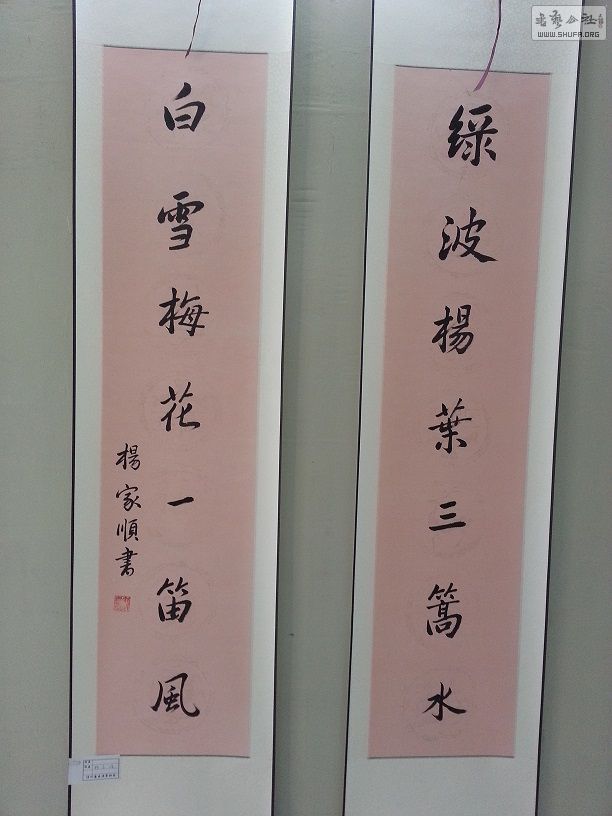 綠波楊葉三篙水
白雪梅花一笛風
楊家順書
书艺公社
WWW.SHUFA.ORG